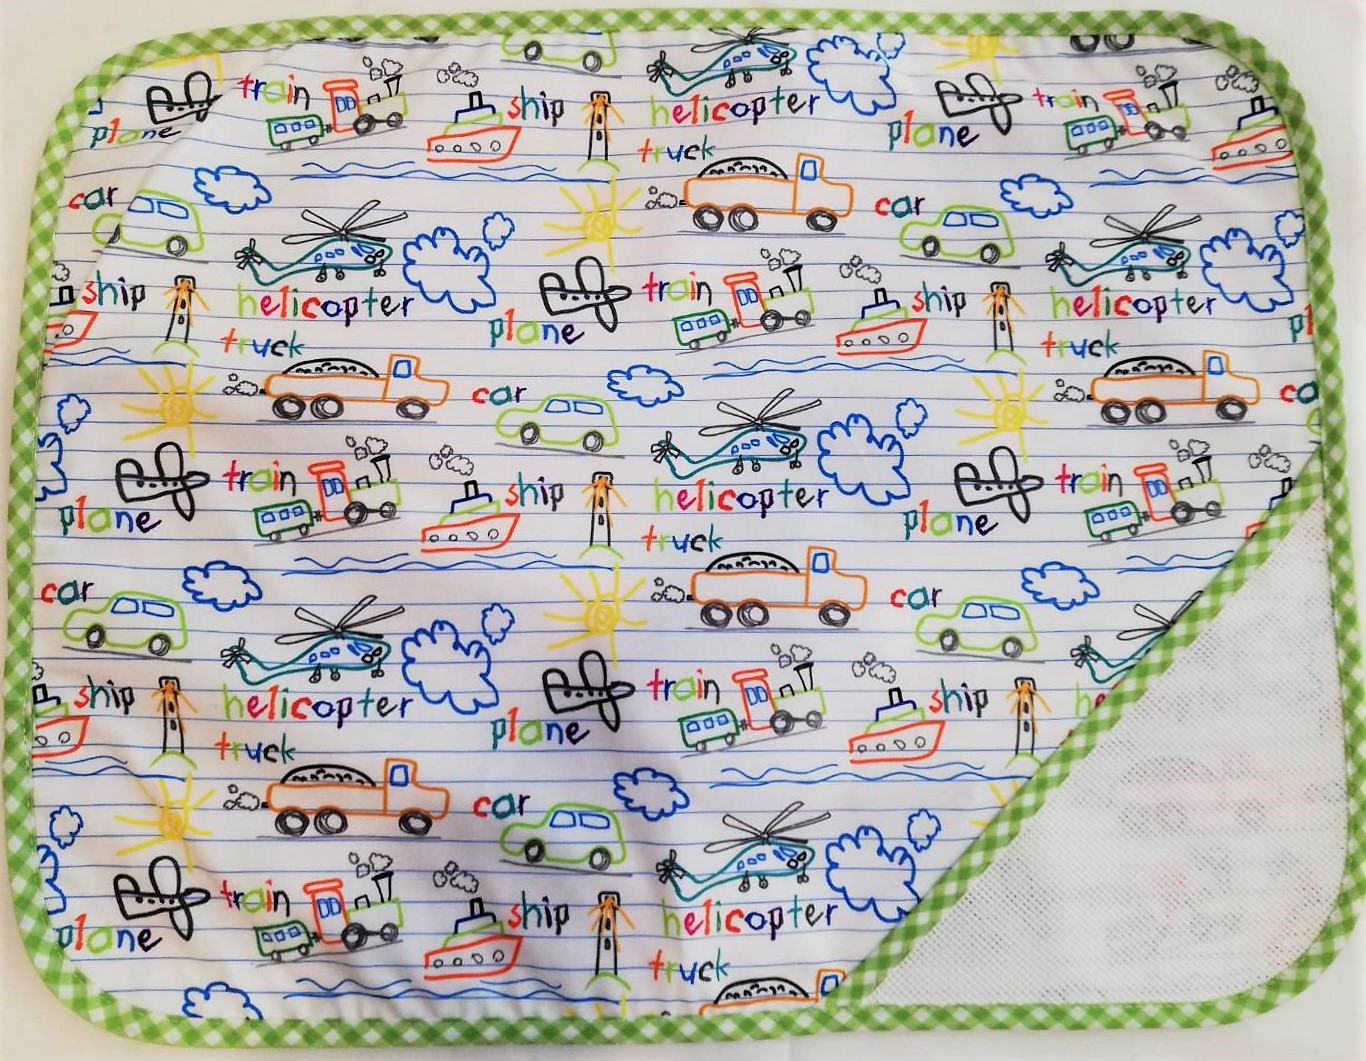 train ship helicopter plane train
plane
truck
car car
ship helicopter plane train ship helicopter pl
truck truck
car ca
plane train ship helicopter plane train
truck
car car
ship helicopter plane train ship he
truck
car
plane train ship helicopter
truck